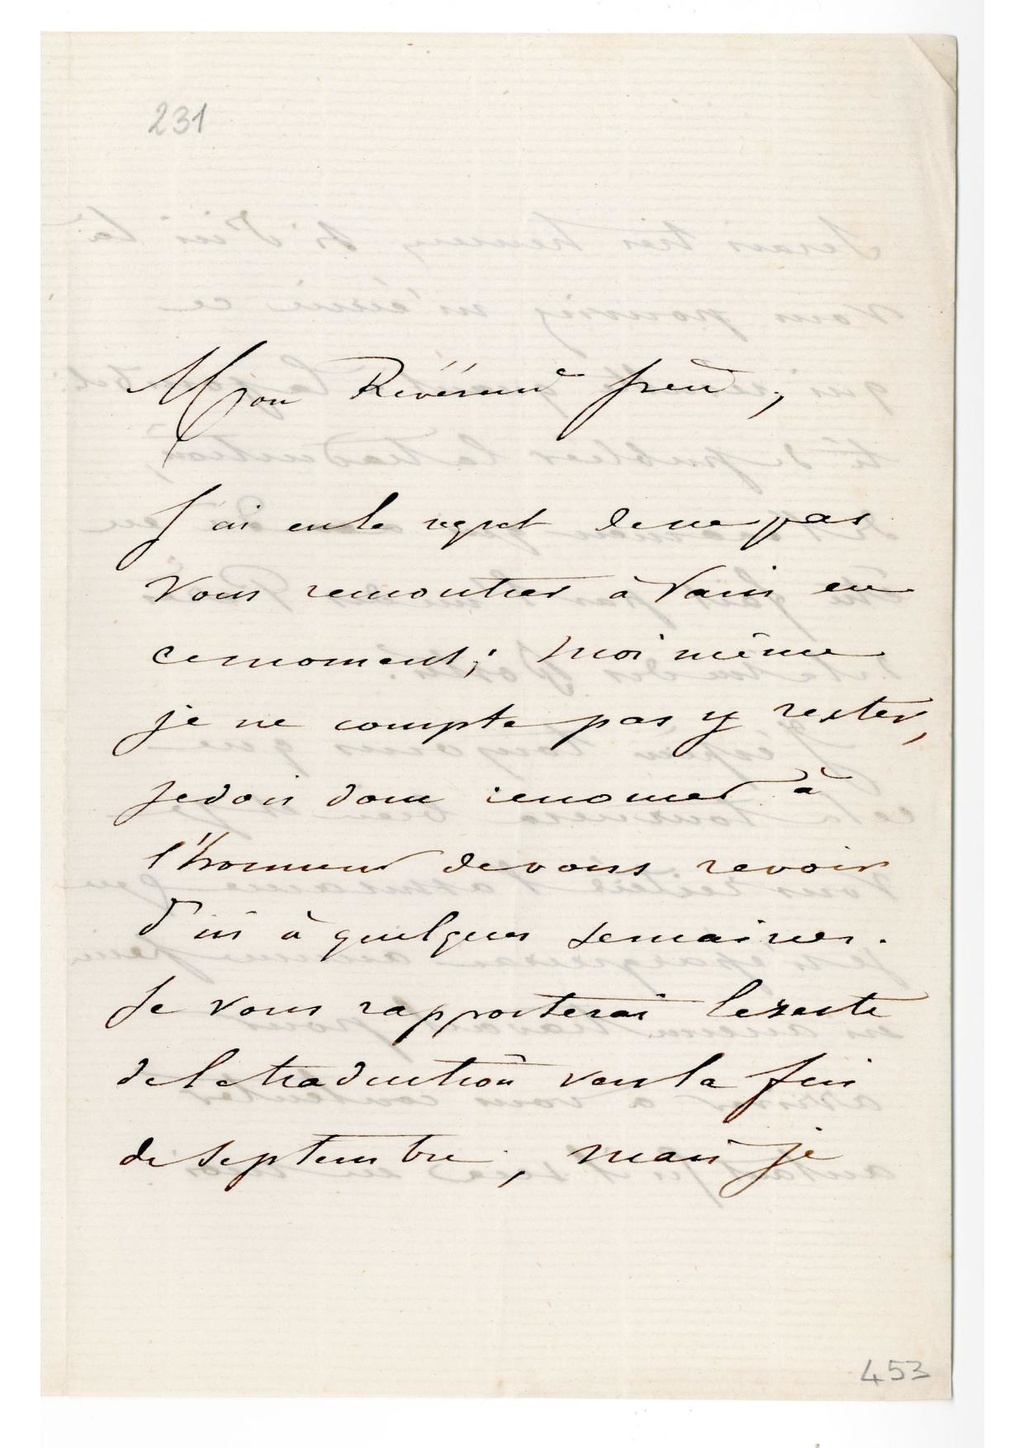 231
Mon Révérend frère,
J'ai eu le regret de ne pas
vous rencontrer à Paris en
ce moment; moi même
je ne compte pas y rester,
je dois donc renoncer à
l'honneur de vous revoir
d'ici à quelques semaines.
Je vous rapporterai le reste
de la traduction vers la fin
de septembre, mais je
453